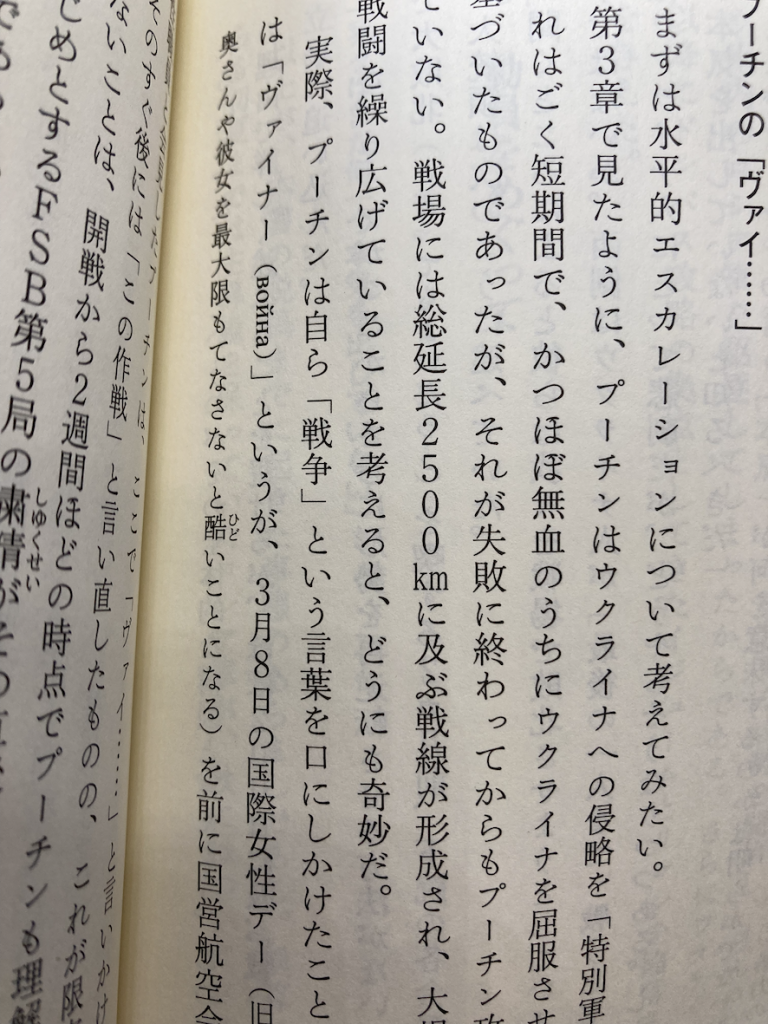 プーチンの「ヴァイ……」
まずは水平的エスカレーションについて考えてみたい。
第３章で見たように、プーチンはウクライナへの侵略を「特別軍
れはごく短期間で、かつほぼ無血のうちにウクライナを屈服させ
基づいたものであったが、それが失敗に終わってからもプーチン政
ていない。戦場には総延長２５００㎞に及ぶ戦線が形成され、大規
戦闘を繰り広げていることを考えると、どうにも奇妙だ。
実際、プーチンは自ら「戦争」という言葉を口にしかけたこと
は「ヴァイナー（война）」というが、３月８日の国際女性デー（旧
奥さんや彼女を最大限もてなさないと酷いことになる）を前に国営航空会
したプーチンは、ここで「ヴァイ……」と言いかけ
そのすぐ後には「この作戦」と言い直したものの、これが限
ないことは、開戦から２週間ほどの時点でプーチンも理解
じめとするＦＳＢ第５局の粛清がその